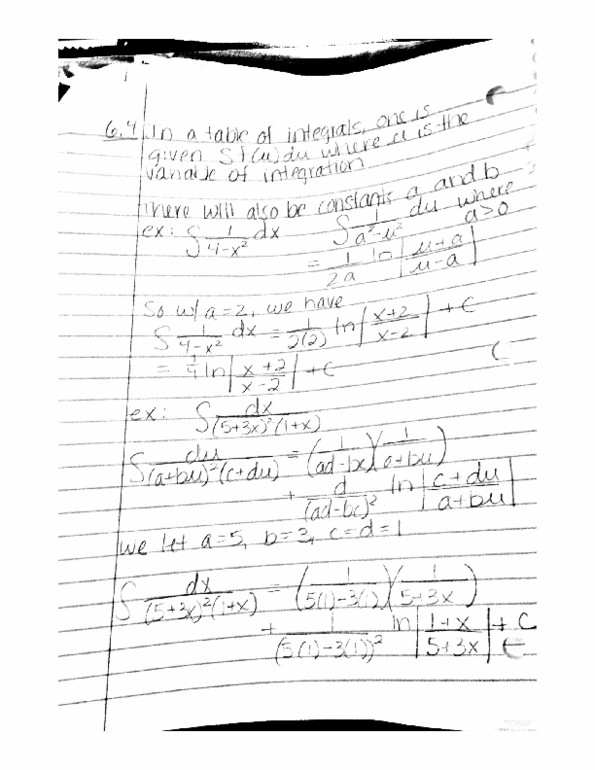 6.4 In a table of integrals, one is
given ∫ f(u) du where u is the
variable of integration
There will also be constants a and b
ex: ∫ 1/(4-x²) dx   ∫ 1/(a²-u²) du where a>0
= 1/(2a) ln |(u+a)/(u-a)|
So w/ a=2, we have
∫ 1/(4-x²) dx = 1/(2(2)) ln |(x+2)/(x-2)| + C
= 1/4 ln |(x+2)/(x-2)| + C
ex: ∫ dx/((5+3x)²(1+x))
∫ du/((a+bu)²(c+du)) = (1/(ad-bc))(1/(a+bu))
+ d/(ad-bc)² ln |(c+du)/(a+bu)|
we let a=5, b=3, c=d=1
∫ dx/((5+3x)²(1+x)) = (1/(5(1)-3(1)))(1/(5+3x))
+ 1/(5(1)-3(1))² ln |(1+x)/(5+3x)| + C